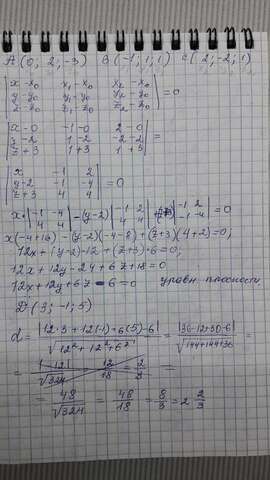 A(0; 2; -3) B(-1; 1; 1) C(2; -2; 1)
|x-x₀ x₁-x₀ x₂-x₀|
|y-y₀ y₁-y₀ y₂-y₀| =0
|z-z₀ z₁-z₀ z₂-z₀|
|x-0 -1-0 2-0|
|y-2 1-2 -2-2| =
|z+3 1+3 1+3|
|x -1 2|
|y-2 -1 -4| =0
|z+3 4 4|
x·|-1 -4; 4 4| -(y-2)|-1 2; 4 4| +(z+3)|-1 2; -1 -4| =0
x(-4+16) -(y-2)(-4-8)+(z+3)(4+2)=0;
12x+(y-2)·12+(z+3)·6=0;
12x+12y-24+6z+18=0
12x+12y+6z-6=0 уравн. плоскости
D(3; -1; 5)
d = |12·3+12(-1)+6·5-6| / √(12²+12²+6²) = |36-12+30-6| / √(144+144+36) =
= 12 / √324 = 12/18 = 2/3 =
= 48/√324 = 48/18 = 8/3 = 2 2/3